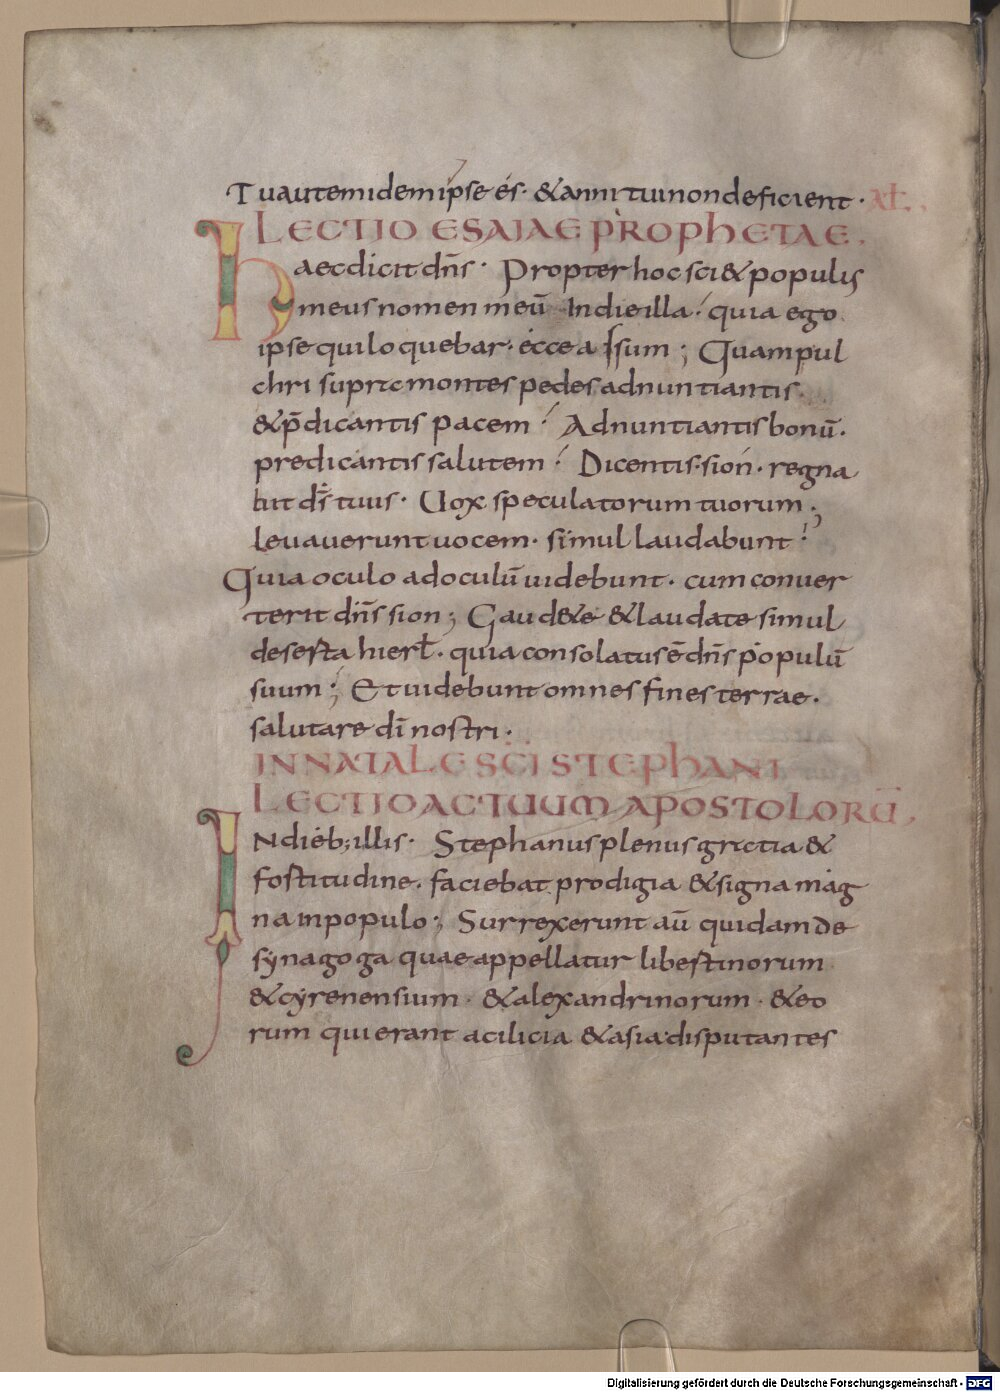 Tu autem idem ipse és · & anni tui non deficient · AŁ.
LECTIO ESAIAE PROPHETAE.
Haec dicit dn̄s · Propter hoc sci& populus
meus nomen meū In die illa · quia ego
ipse qui loquebar · ecce adsum ; Quam pul
chri supra montes pedes adnuntiantis
& p̄dicantis pacem · Adnuntiantis bonū.
predicantis salutem · Dicentis · sion · regna
bit ds̄ tuus · Uox speculatorum tuorum ;
leuauerunt uocem · simul laudabunt ·
Quia oculo ad oculū uidebunt · cum conuer
terit dn̄s sion ; Gaud&e & laudate simul
deserta hierł · quia consolatus ē dn̄s populū
suum ; Et uidebunt omnes fines terrae ·
salutare dī nostri ·
IN NATALE SC̄I STEPHANI
LECTIO ACTUUM APOSTOLORŪ.
IN dieb; illis · Stephanus plenus gratia &
fortitudine · faciebat prodigia & signa mag
na in populo ; Surrexerunt aū quidam de
synagoga quae appellatur libertinorum
& cyrenensium · & alexandrinorum · & eo
rum qui erant a cilicia & asia disputantes
Digitalisierung gefördert durch die Deutsche Forschungsgemeinschaft - DFG